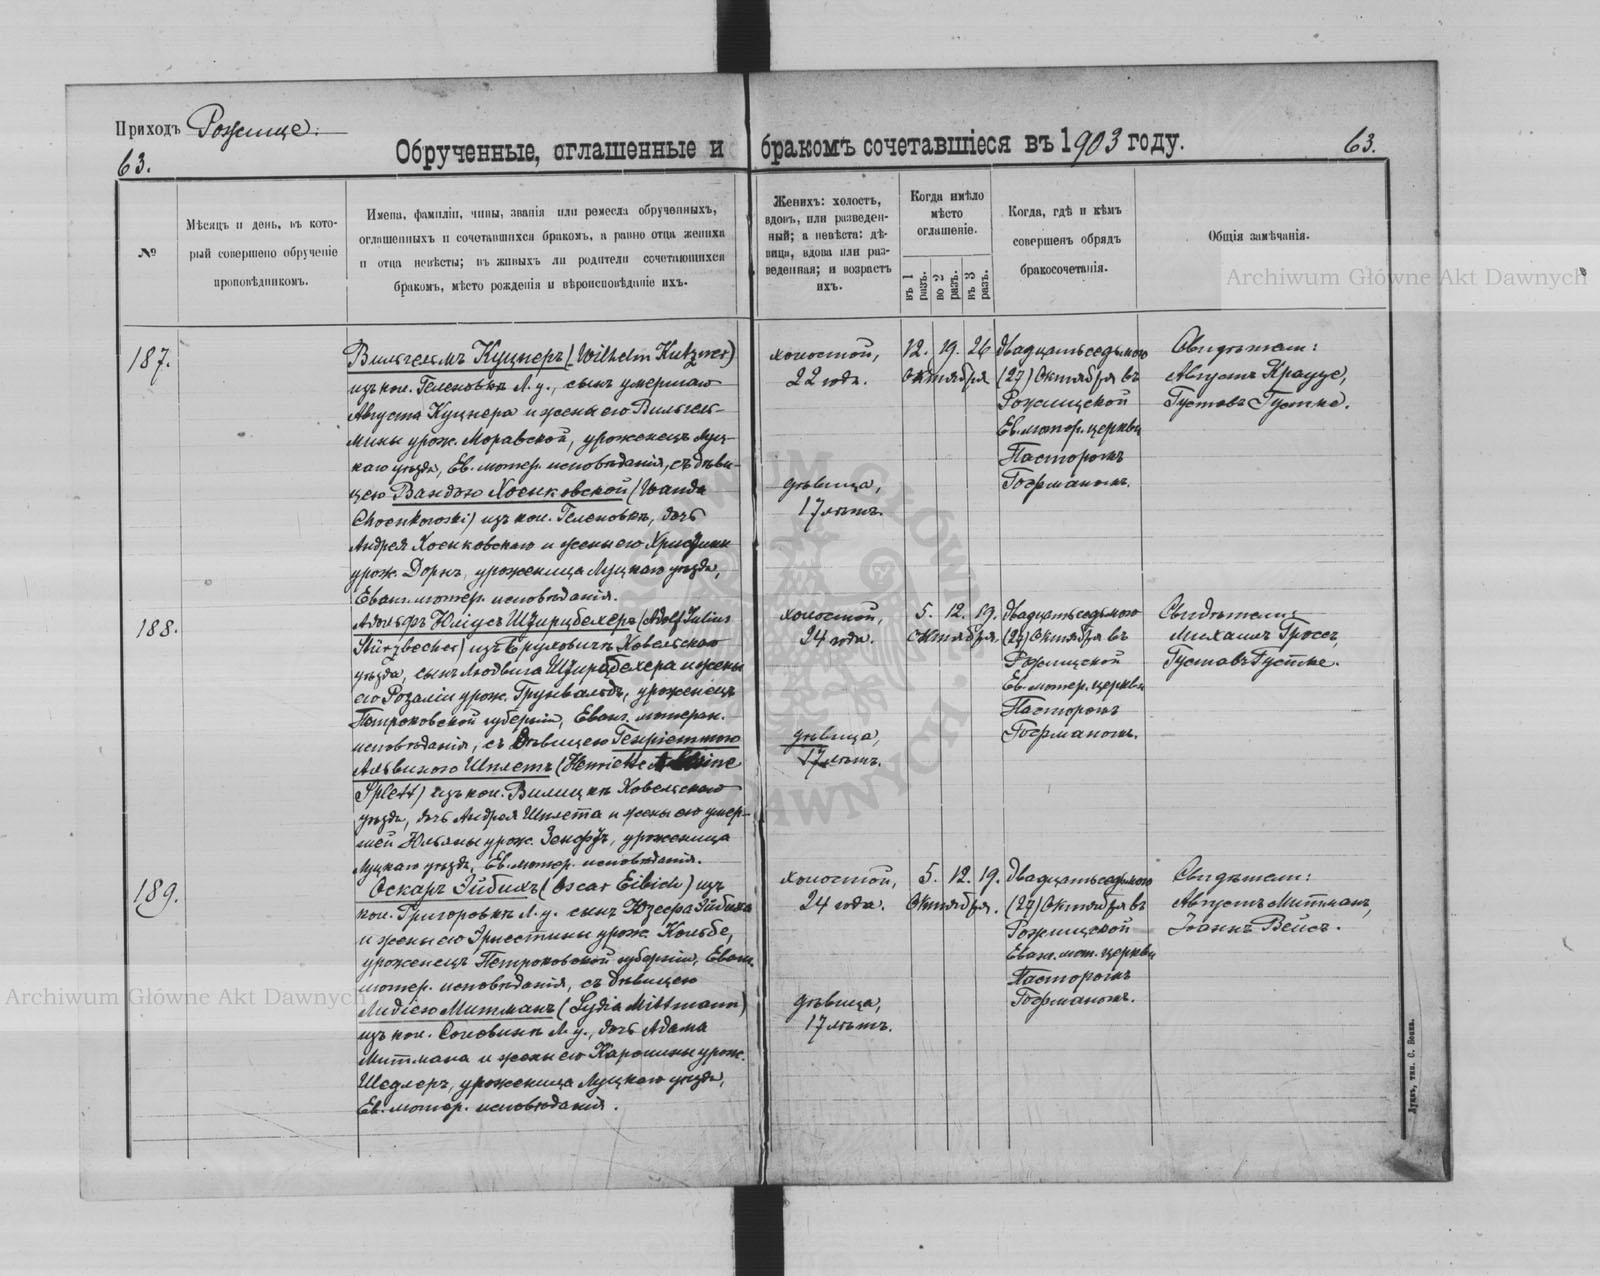 Приходъ Рожище.
63.
Обрученные, оглашенные и бракомъ сочетавшіеся въ 1903 году.
63.
№
Мѣсяцъ и день, въ кото-
рый совершено обрученіе
проповѣдникомъ.
Имена, фамиліи, чины, званія или ремесла обрученныхъ,
оглашенныхъ и сочетавшихся бракомъ, а равно отца жениха
и отца невѣсты; въ живыхъ ли родители сочетающихся
бракомъ, мѣсто рожденія и вѣроисповѣданіе ихъ.
Женихъ: холостъ,
вдовъ, или разведен-
ный; а невѣста: дѣ-
вица, вдова или раз-
веденная; и возрастъ
ихъ.
Когда имѣло
мѣсто
оглашеніе.
въ 1 разъ.
во 2 разъ.
въ 3 разъ.
Когда, гдѣ и кѣмъ
совершенъ обрядъ
бракосочетанія.
Общія замѣчанія.
187.
Вильгельмъ Куцнеръ (Wilhelm Kutzner)
изъ кол. Геленовки Л. у., сынъ умершаго
Августа Куцнера и жены его Вильгель-
мины урож. Моравской, уроженецъ Луц-
каго уѣзда, Ев. лютер. исповѣданія, съ дѣви-
цею Вандою Хоенковской (Wanda
Choenkowski) изъ кол. Геленовки, дочь
Андрея Хоенковскаго и жены его Христины
урож. Дорнъ, уроженица Луцкаго уѣзда,
Еванг. лютер. исповѣданія.
холостой,
22 года.
дѣвица,
17 лѣтъ.
12. 19. 26
Октября
двадцать седьмого
(27) Октября въ
Рожищской
Ев. лютер. церкви
Пасторомъ
Гофманомъ.
Свидѣтели:
Августъ Краузе,
Густавъ Густке.
188.
Адольфъ Юліусъ Штирцбехеръ (Adolf Julius
Stürzbecher) изъ Ковельскаго
уѣзда, сынъ Людвига Штирцбехера и жены
его Розаліи урож. Грунвальдъ, уроженецъ
Петроковской губерніи, Еванг. лютеран.
исповѣданія, съ дѣвицею Генріеттою
Альвиною Шплетъ (Henriette Alwine
Splett) изъ кол. Ковельскаго
уѣзда, дочь Андрея Шплета и жены его умер-
шей Юльяны урож. Зенфъ, уроженица
Луцкаго уѣзда, Ев. лютер. исповѣданія.
холостой,
24 года.
дѣвица,
17 лѣтъ.
5. 12. 19.
октября.
двадцать седьмого
(27) Октября въ
Рожищской
Ев. лютер. церкви
Пасторомъ
Гофманомъ.
Свидѣтели:
Михаилъ Гроссъ,
Густавъ Густке.
189.
Оскаръ Эйбихъ (Oscar Eibich) изъ
кол. Григоровки Л. у. сынъ Юзефа Эйбиха
и жены его Эрнестины урож. Кольбе,
уроженецъ Петроковской губерніи, Еванг.
лютер. исповѣданія, съ дѣвицею
Лидіею Митманъ (Lydia Mittmann)
изъ кол. Л. у., дочь Адама
Митмана и жены его Каролины урож.
Шедлеръ, уроженица Луцкаго уѣзда,
Ев. лютер. исповѣданія.
холостой,
24 года.
дѣвица,
17 лѣтъ.
5. 12. 19.
Октября.
двадцать седьмого
(27) Октября въ
Рожищской
Еван. лют. церкви
Пасторомъ
Гофманомъ.
Свидѣтели:
Августъ Митманъ,
Іоанъ Вейсъ.
Archiwum Główne Akt Dawnych
Archiwum Główne Akt Dawnych